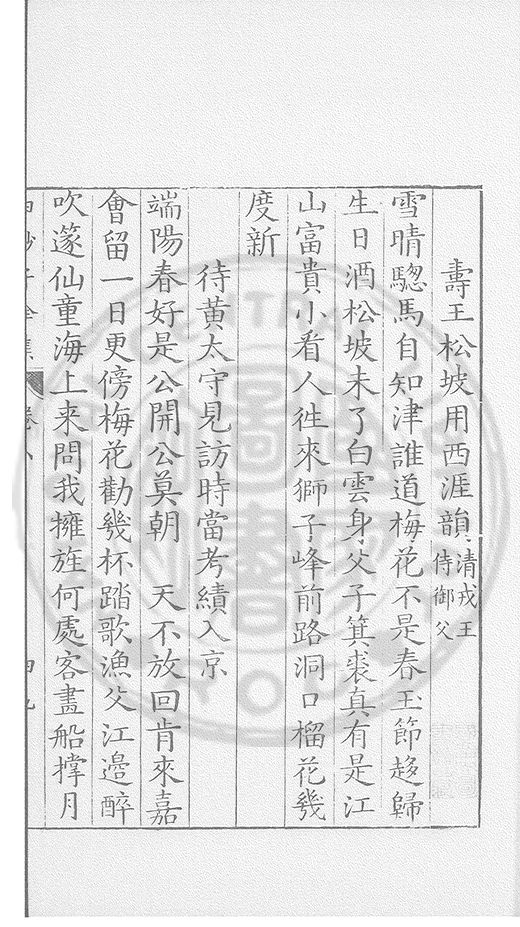 壽王松坡用西涯韻清戎王侍御父
雪晴驄馬自知津誰道梅花不是春玉節趍歸
生日酒松坡未了白雲身父子箕裘真有是江
山富貴小看人徃來獅子峰前路洞口榴花幾
度新
待黄太守見訪時當考績入京
端陽春好是公開公莫朝　天不放回肯來嘉
會留一日更傍梅花勸幾杯踏歌漁父江邉醉
吹篴仙童海上来問我擁旌何處客畫船撑月